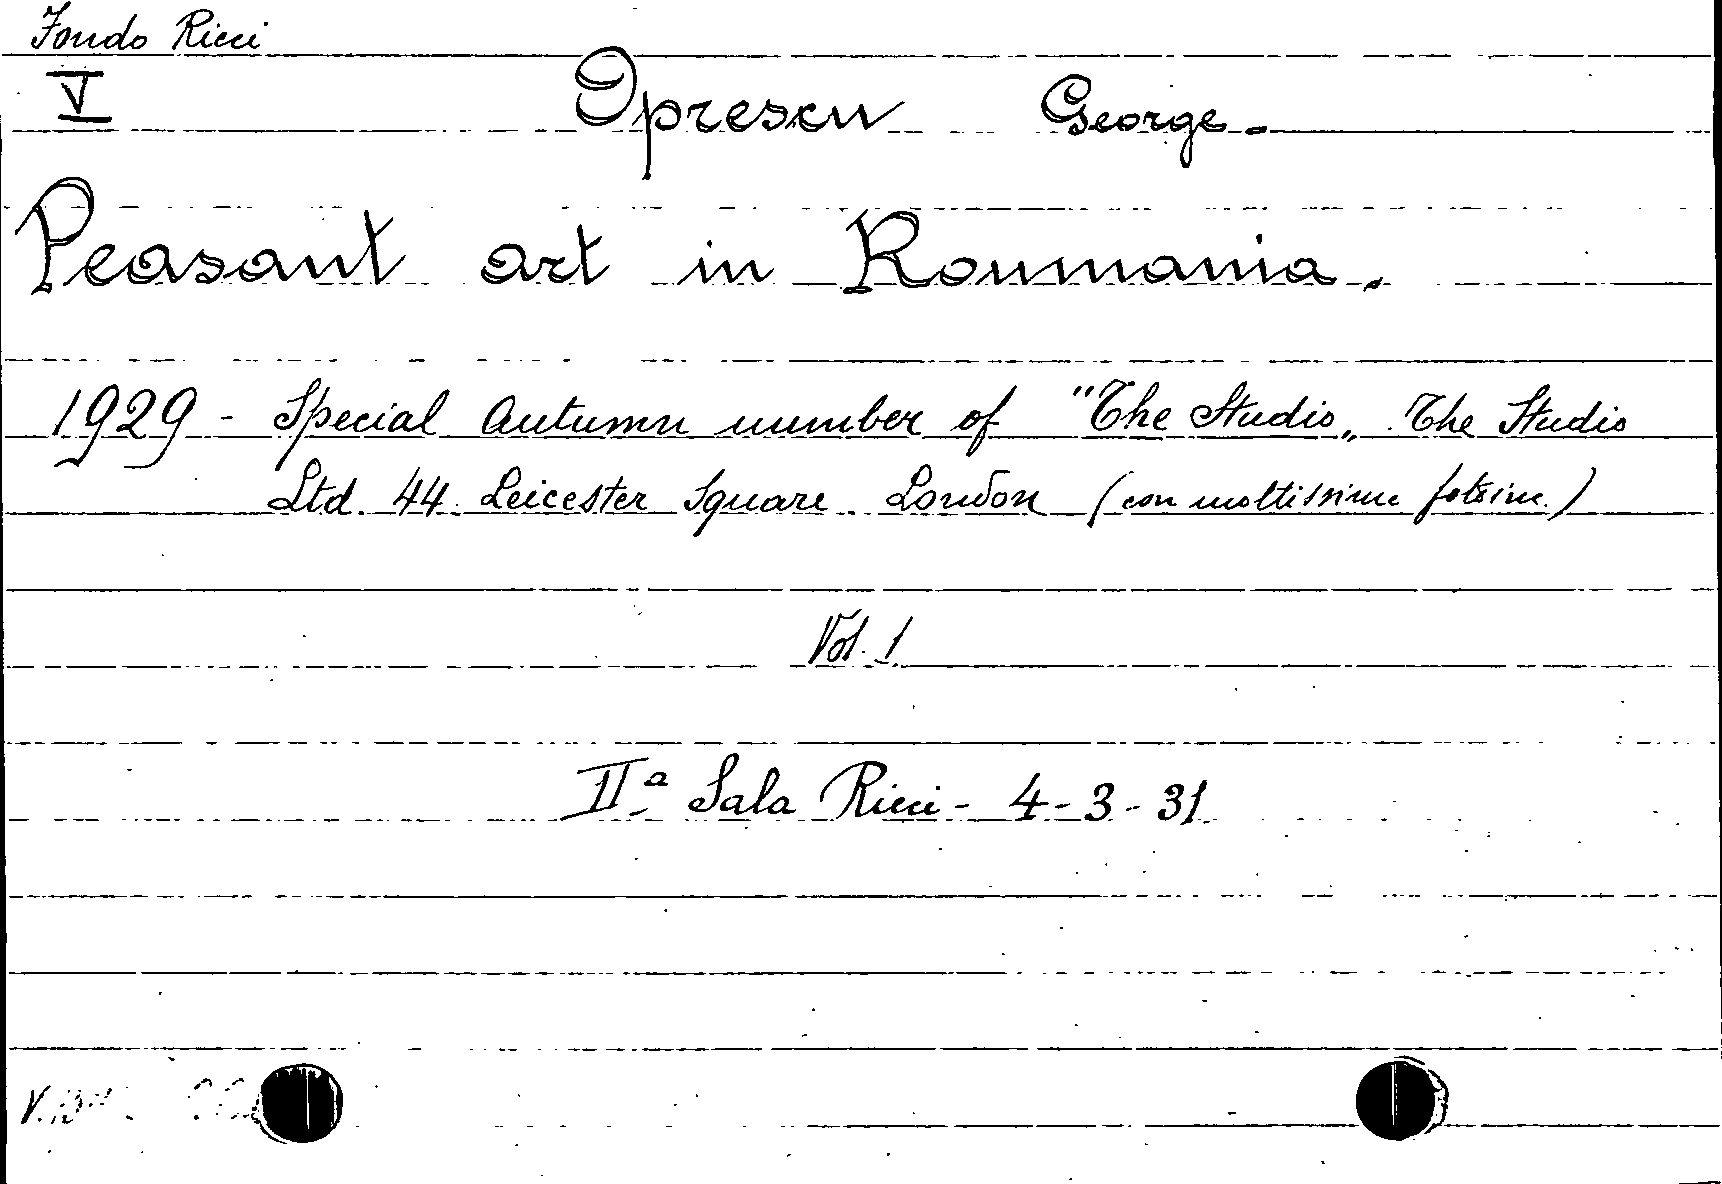 Fondo Ricci
V Oprescu George.
Peasant art in Roumania.
1929 - Special Autumn number of "The Studio„ The Studio
Ltd. 44 Leicester Square. London (con moltissime fotoinc.)
Vol. 1
IIª Sala Ricci - 4-3-31